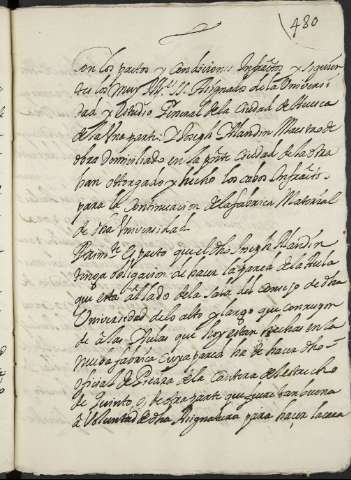 480
Con los pactos y Condiciones Infraptos y siguien
tes los muy Illes. SS. Asignados de la Universi
dad y Estudio General de la Ciudad de Huesca
de la Una parte: Y Joseph Alandin Maestro de
obras Domiciliado en la pnte Ciudad de la otra
han otorgado y hecho los cabos Infraptos
para la Continuacion de la fabrica Material
de dha Universidad.
Primte. Es pacto que el dho Joseph Alandin
tenga obligacion de hacer la pared de la Aula
que está al lado de la Sala del Consejo de dha
Universidad de lo alto y largo que corresponde
a las Aulas que hoy estan hechas en la
nueba fabrica cuya pared ha de hacer dho
oficial de Piedra de la Cantera de
de Quinto, o de otra parte que fuere tan buena
a Voluntad de dha Asignatura para hacer la cara